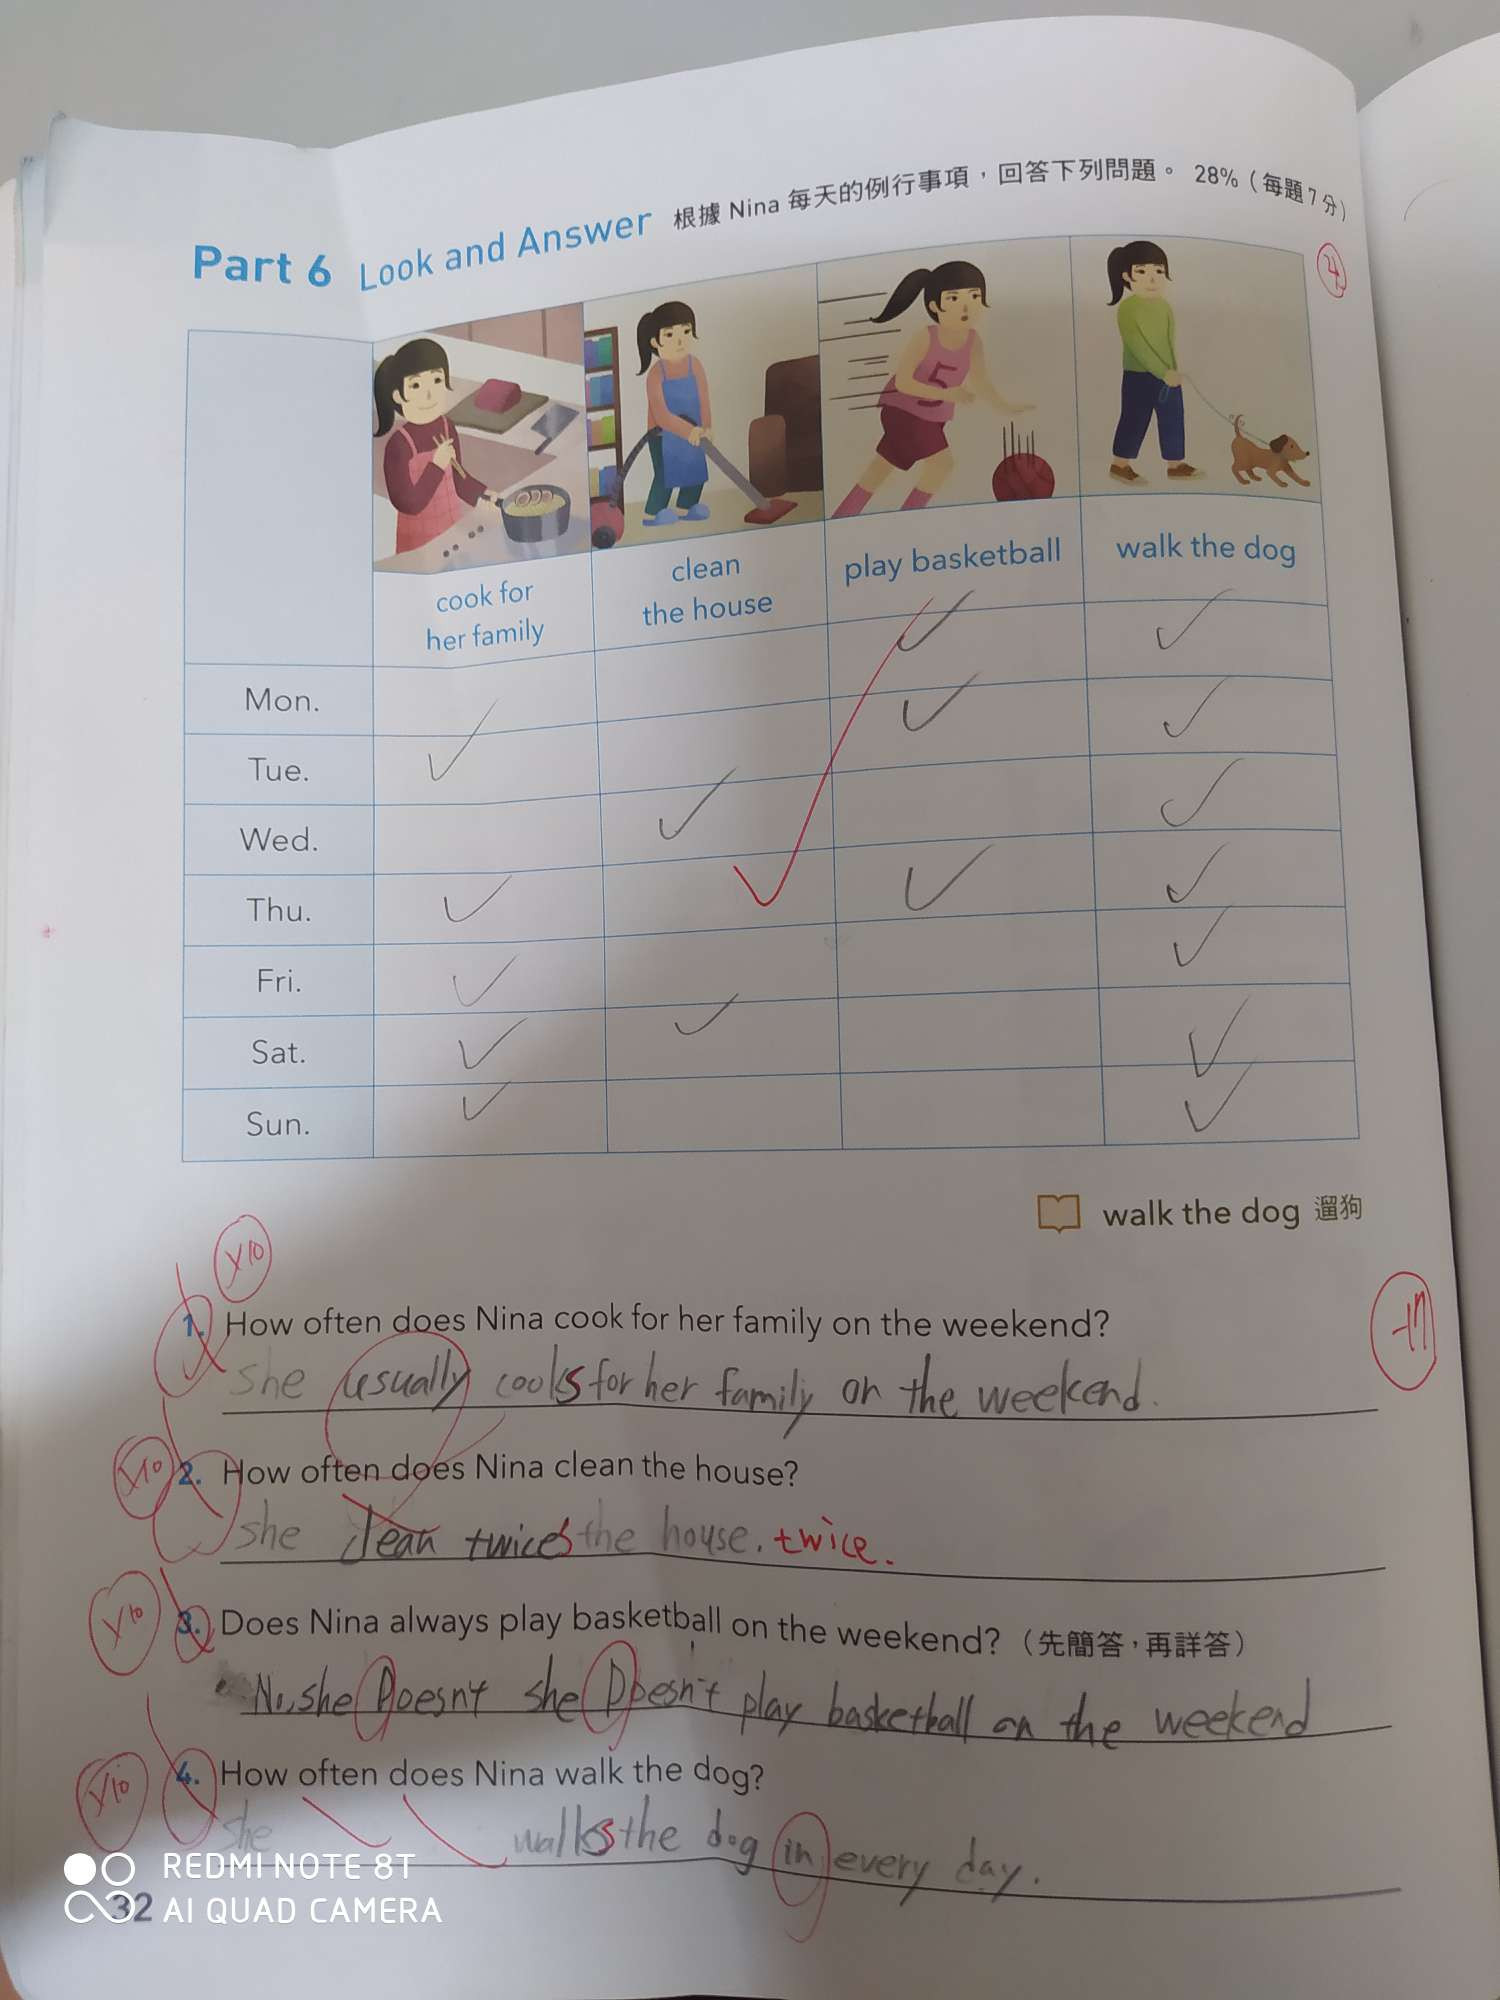 Part 6 Look and Answer 根據 Nina 每天的例行事項，回答下列問題。 28%（每題7分）
4
5
cook for
her family
clean
the house
play basketball
walk the dog
Mon.
Tue.
Wed.
Thu.
Fri.
Sat.
Sun.
walk the dog 遛狗
x10
1. How often does Nina cook for her family on the weekend?
she usually cooks for her family on the weekend.
x10
2. How often does Nina clean the house?
she clean twices the house. twice.
x10
3. Does Nina always play basketball on the weekend?（先簡答，再詳答）
No, she Doesn't she Doesn't play basketball on the weekend
x10
4. How often does Nina walk the dog?
she walks the dog in every day.
REDMI NOTE 8T
32
AI QUAD CAMERA